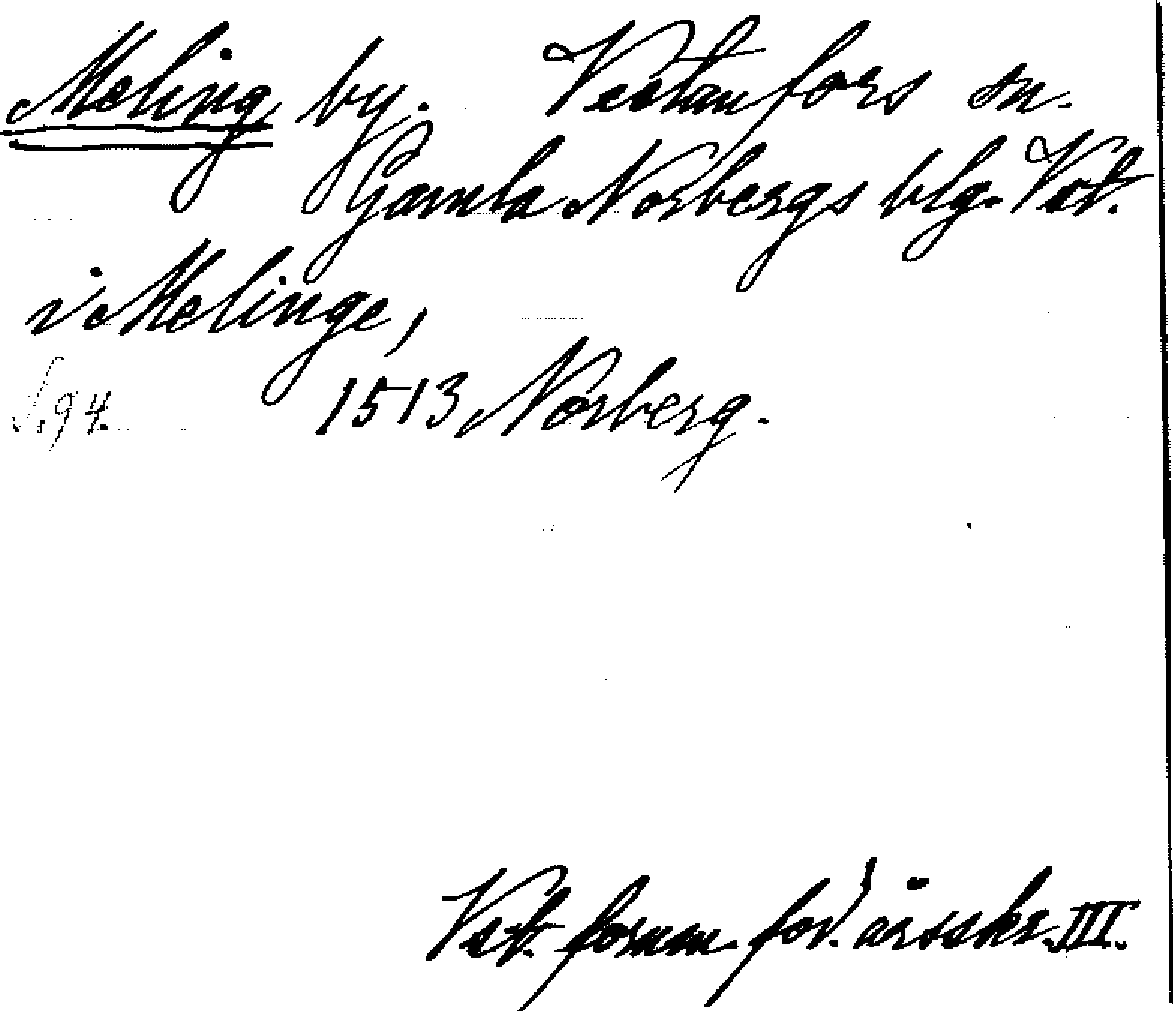 Meling by. Vestanfors sn.
Gamla Norbergs blg. Vst.
i Melinge,
S. 94. 1513 Norberg.
Vst. fornm. för. årsskr. III.